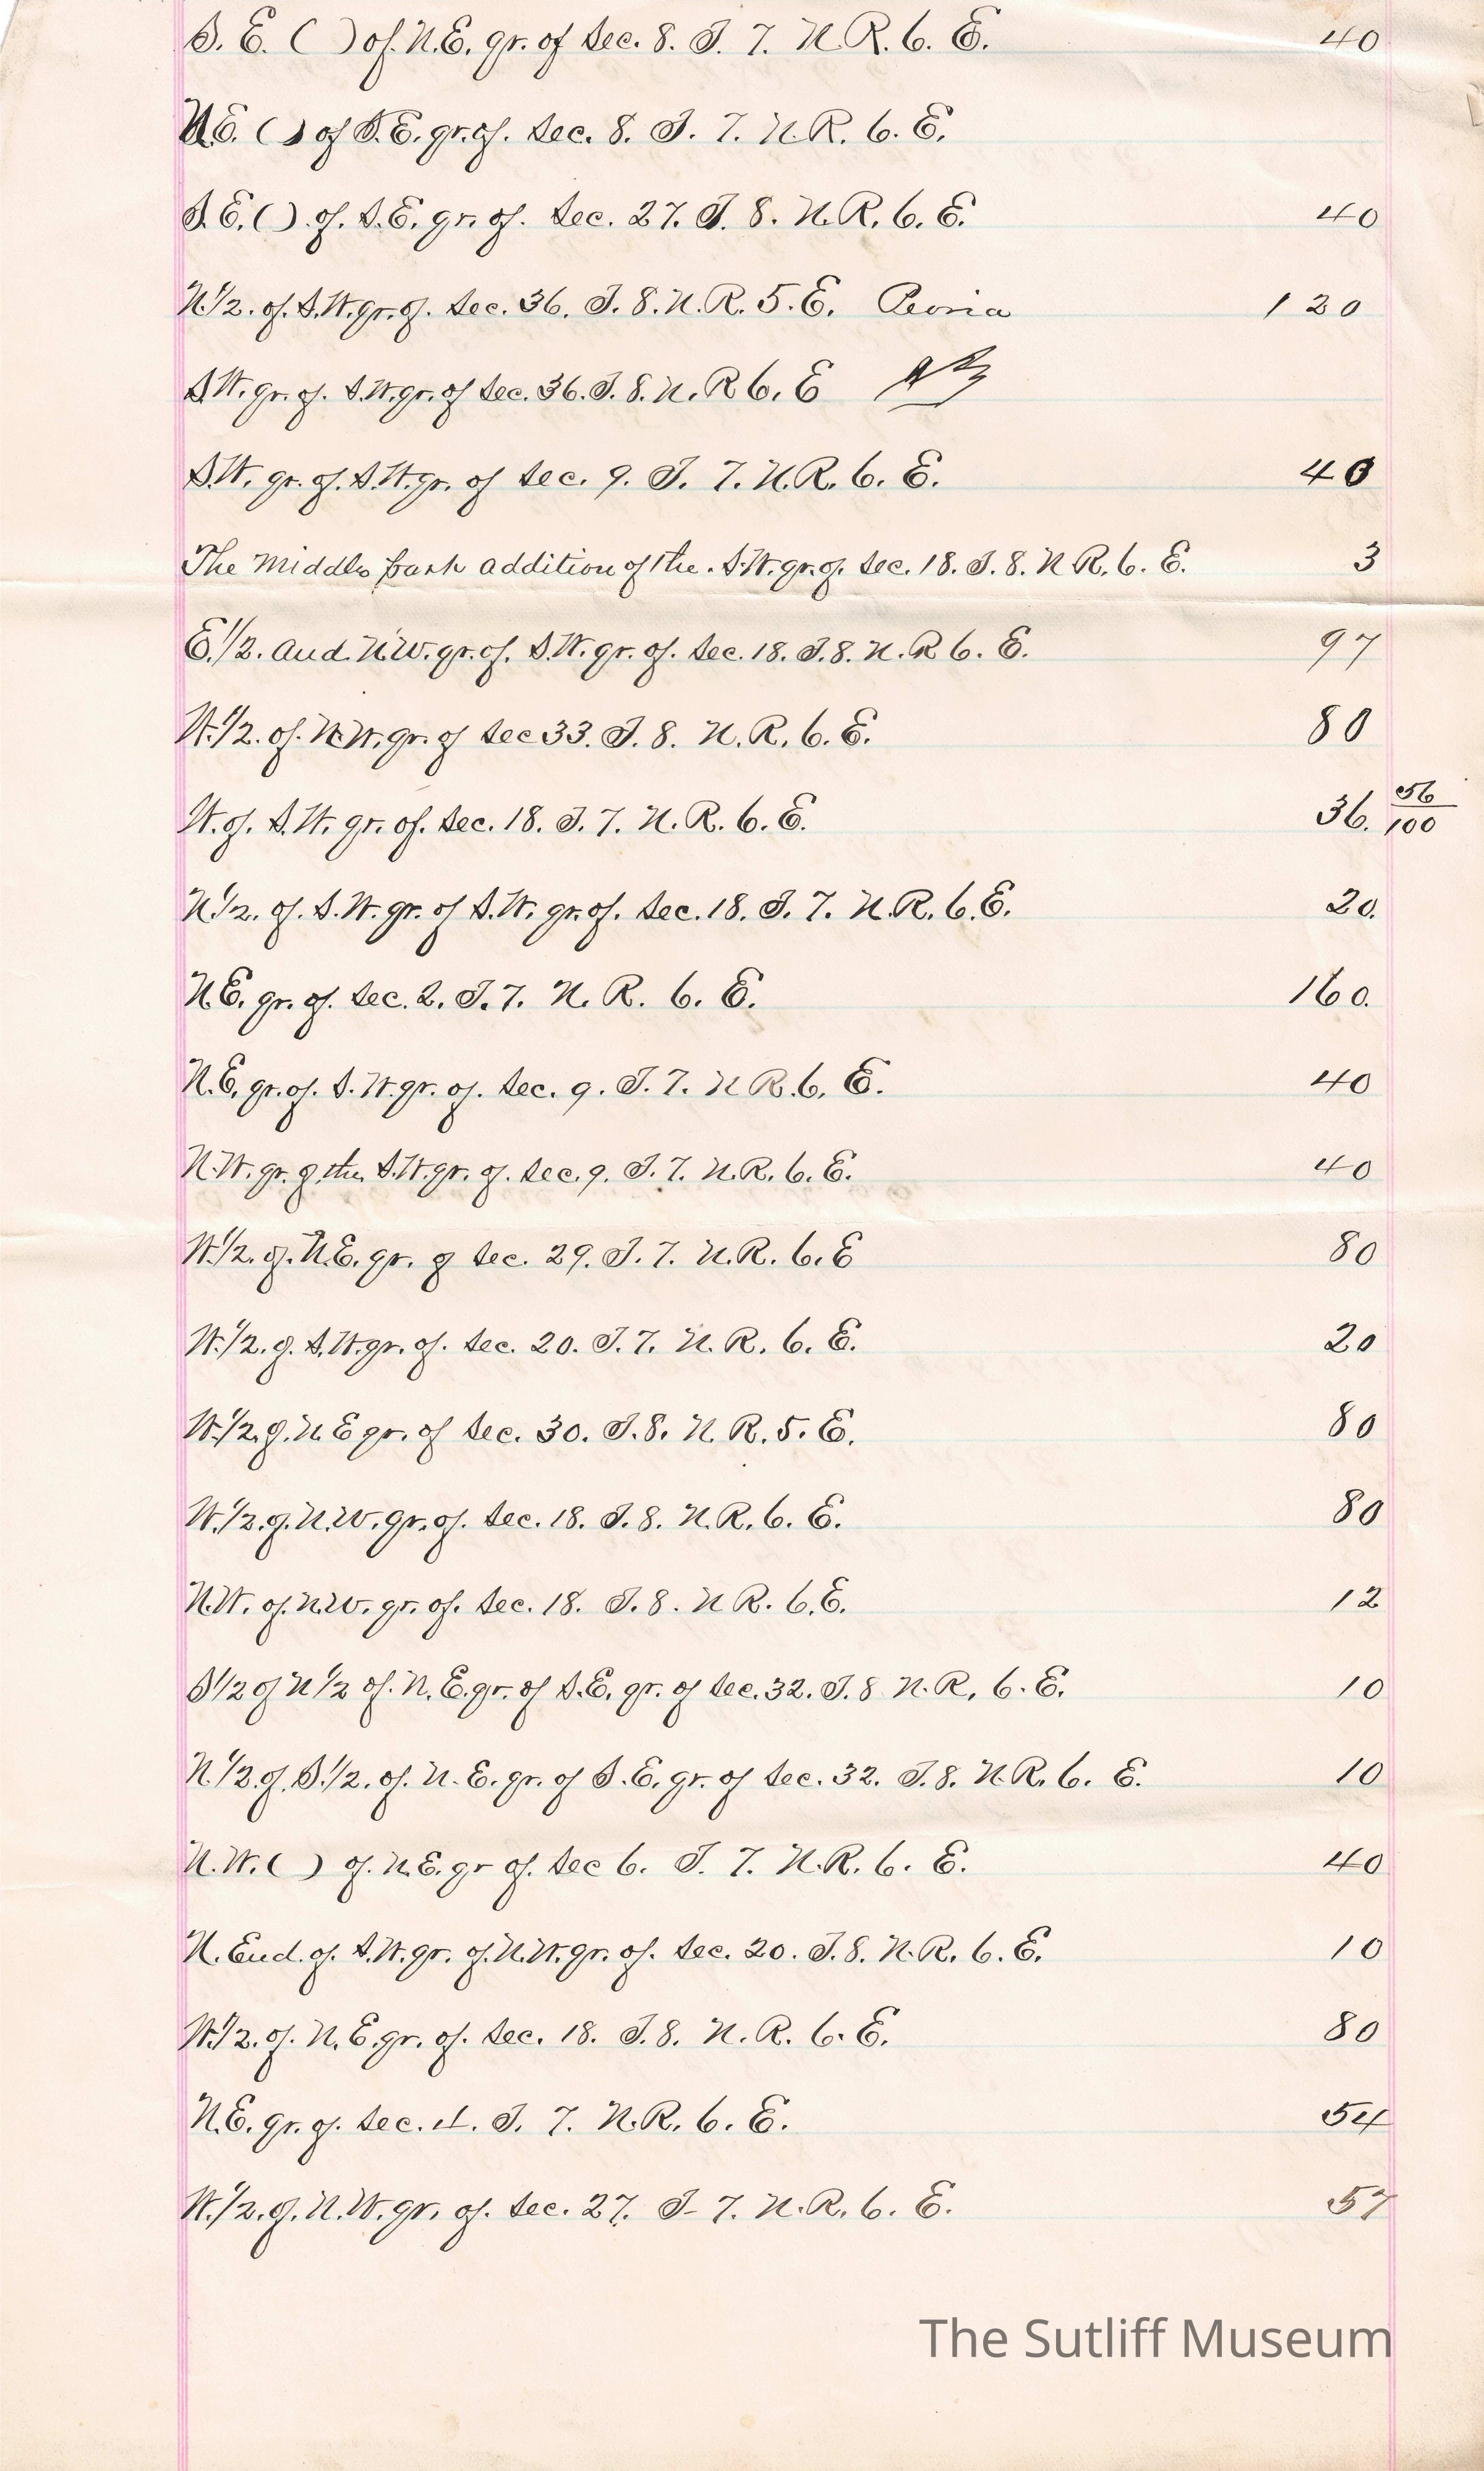 S. E. ( ) of N.E. qr. of Sec. 8. T. 7. N R. 6. E. 40
N.E. ( ) of S.E. qr. of. Sec. 8. T. 7. N R. 6. E.
S.E. ( ). of. S.E. qr. of. Sec. 27. T. 8. N. R. 6. E. 40
N1/2. of. S.W. qr. of. Sec. 36. T. 8. N. R. 5. E. Peoria 120
S.W. qr. of. S.W. qr. of Sec. 36. T. 8. N. R 6. E
S.W. qr. of. S.W. qr. of Sec. 9. T. 7. N. R. 6. E. 40
The Middle addition of the. S.W. qr. of. Sec. 18. T. 8. N R. 6. E. 3
E.1/2. and. N.W. qr. of. S.W. qr. of. Sec. 18. T. 8. N. R 6. E. 97
W.1/2. of. N.W. qr. of Sec 33. T. 8. N. R. 6. E. 80
W. of. S.W. qr. of. Sec. 18. T. 7. N. R. 6. E. 36. 56/100
N1/2. of. S.W. qr. of S.W. qr. of. Sec. 18. T. 7. N. R. 6. E. 20.
N.E. qr. of. Sec. 2. T. 7. N. R. 6. E. 160.
N.E. qr. of. S.W. qr. of. Sec. 9. T. 7. N R. 6. E. 40
N.W. qr. of the S.W. qr. of. Sec. 9. T. 7. N. R. 6. E. 40
W.1/2. of. N.E. qr. of Sec. 29. T. 7. N. R. 6. E 80
W.1/2. of. S.W. qr. of. Sec. 20. T. 7. N. R. 6. E. 20
W.1/2. of. N E qr. of Sec. 30. T. 8. N R. 5. E. 80
W.1/2. of. N.W. qr. of. Sec. 18. T. 8. N. R. 6. E. 80
N.W. of. N.W. qr. of. Sec. 18. T. 8. N R. 6. E. 12
S1/2 of N1/2 of. N. E. qr. of S.E. qr. of Sec. 32. T. 8 N. R. 6. E. 10
N.1/2. of. S.1/2. of. N. E. qr. of S. E. qr. of Sec. 32. T. 8. N R. 6. E. 10
N.W. ( ) of. N E. qr of. Sec 6. T. 7. N. R. 6. E. 40
N. End. of. S.W. qr. of. N.W. qr. of. Sec. 20. T. 8. N. R. 6. E. 10
W.1/2. of. N. E. qr. of. Sec. 18. T. 8. N. R. 6. E. 80
N.E. qr. of. Sec. 4. T. 7. N. R. 6. E. 54
W.1/2. of. N.W. qr. of. Sec. 27. T- 7. N. R. 6. E. 57
The Sutliff Museum